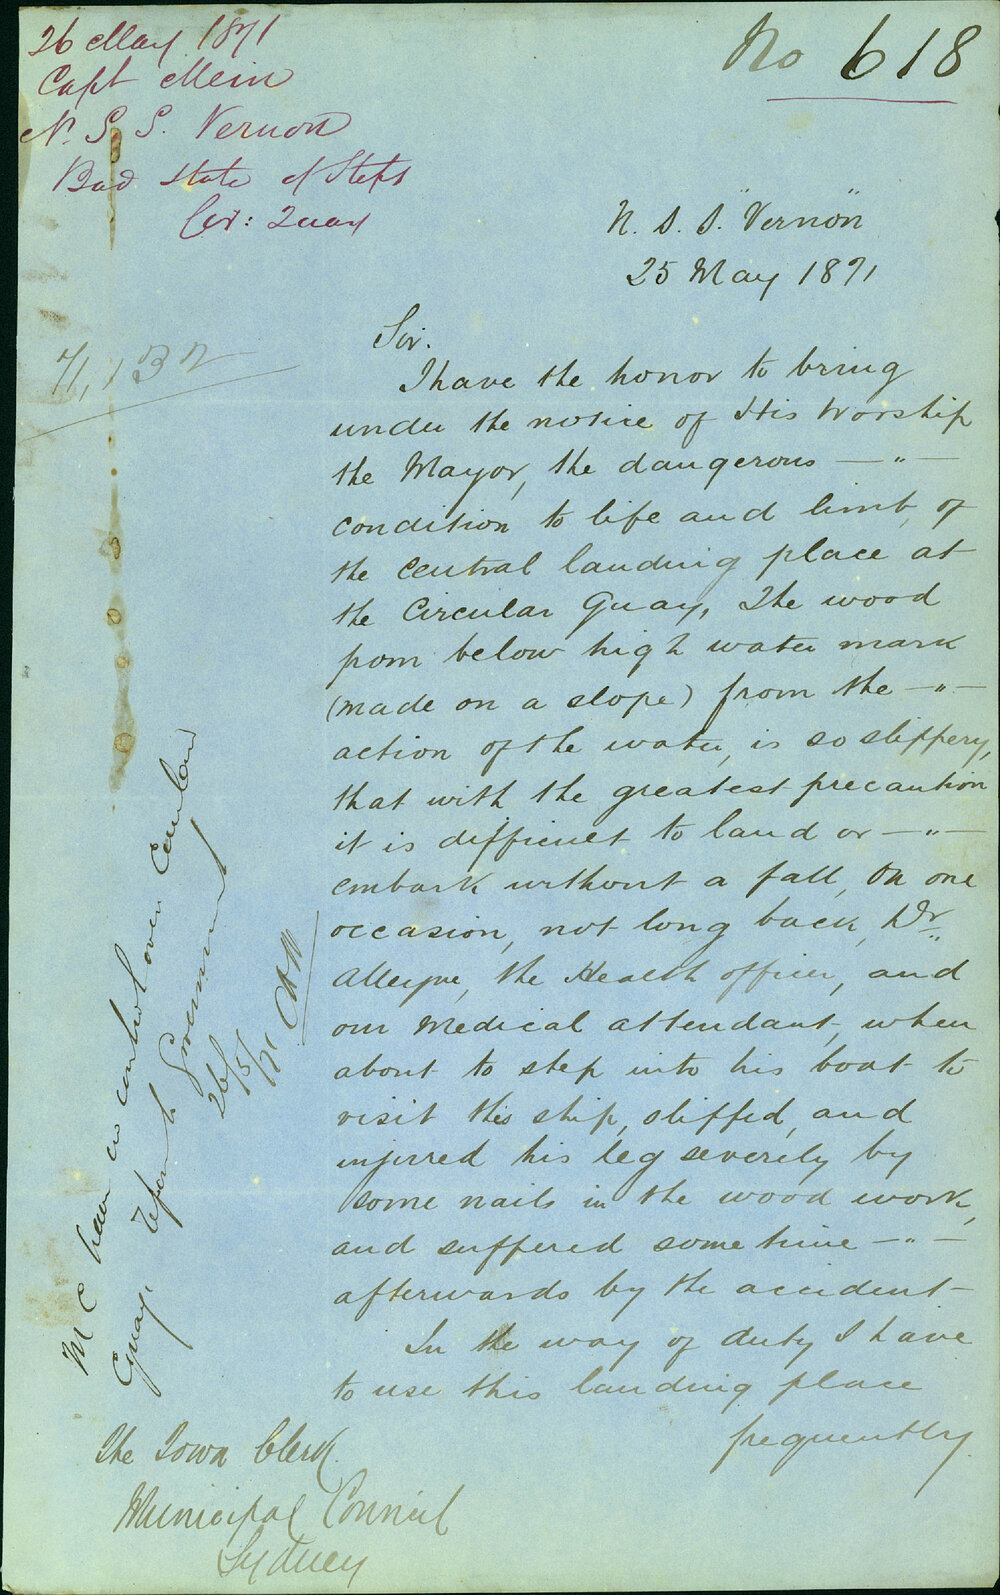 26 May 1871
Capt Mein
N. S. S. Vernon
Bad state of Steps
Cir: Quay
No 618
N. S. S. "Vernon"
25 May 1871
71,132
Sir.
I have the honor to bring
under the notice of His Worship
the Mayor, the dangerous — " —
condition to life and limb, of
the Central landing place at
the Circular Quay, The wood
from below high water mark
(made on a slope) from the — " —
action of the water, is so slippery,
that with the greatest precaution
it is difficult to land or — " —
embark without a fall, On one
occasion, not long back, Dr
Alleyne, the Health officer, and
our Medical attendant, when
about to step into his boat to
visit this ship, slipped, and
injured his leg severely by
some nails in the wood work,
and suffered some time — " —
afterwards by the accident —
In the way of duty I have
to use this landing place
frequently.
The Town Clerk
Municipal Council
Sydney
M C have no control over Circular
Quay. Refer to Government
26/5/71